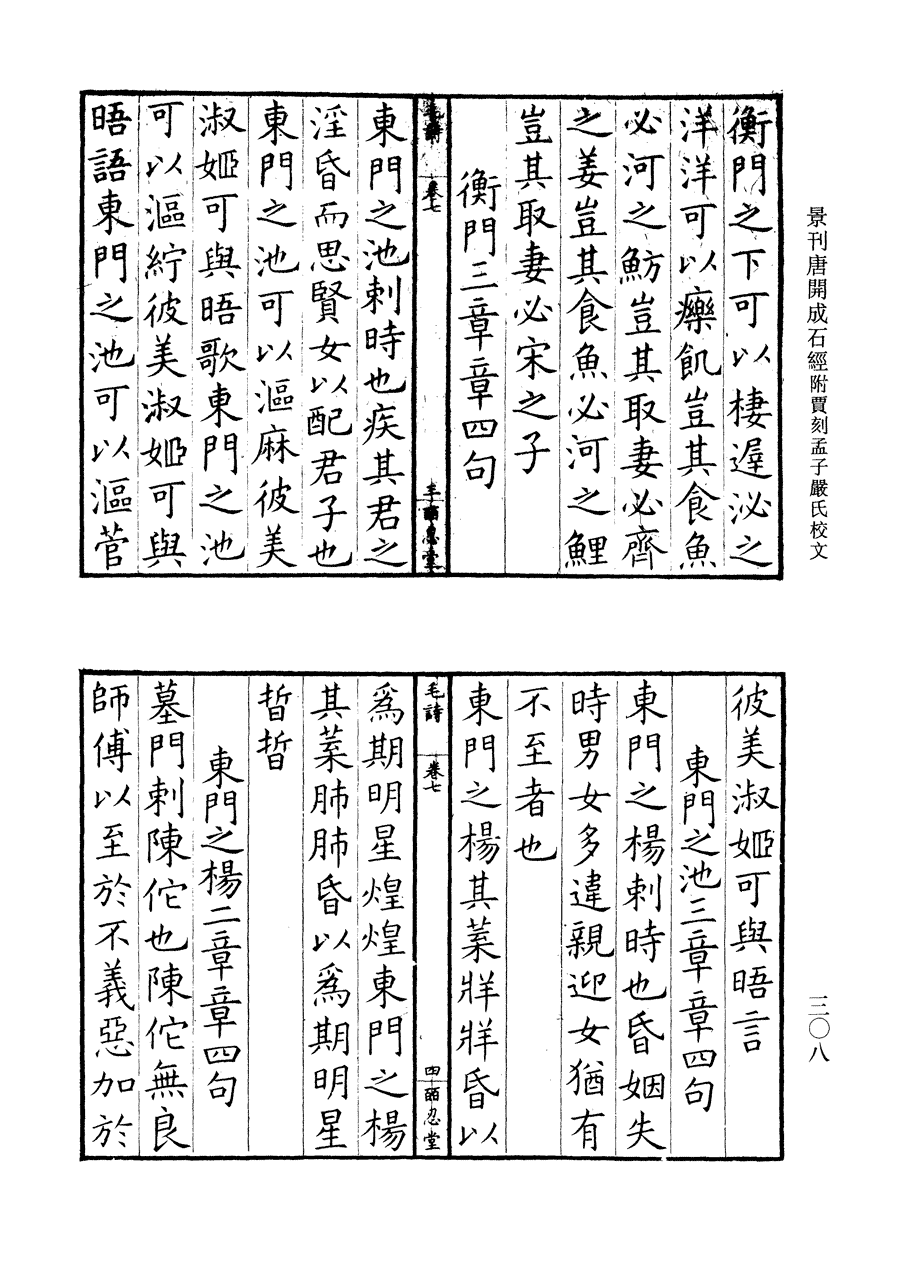 景刊唐開成石經附賈刻孟子嚴氏校文
衡門之下可以棲遲泌之
洋洋可以㿋飢豈其食魚
必河之魴豈其取妻必齊
之姜豈其食魚必河之鯉
豈其取妻必宋之子
衡門三章章四句
毛詩 卷七 三 皕忍堂
東門之池刺時也疾其君之
淫昏而思賢女以配君子也
東門之池可以漚麻彼美
淑姬可與晤歌東門之池
可以漚紵彼美淑姬可與
晤語東門之池可以漚菅
三〇八
彼美淑姬可與晤言
東門之池三章章四句
東門之楊刺時也昏姻失
時男女多違親迎女猶有
不至者也
東門之楊其葉牂牂昏以
毛詩 卷七 四 皕忍堂
爲期明星煌煌東門之楊
其葉肺肺昏以爲期明星
晢晢
東門之楊二章章四句
墓門刺陳佗也陳佗無良
師傅以至於不義惡加於